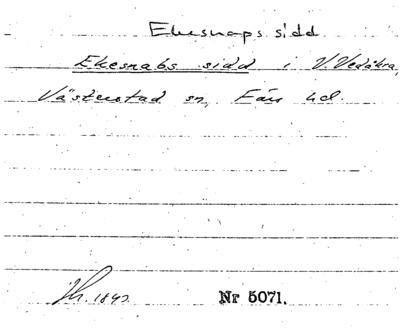 Ekesnaps sidd
Ekesnabs sidd i V. Vedåkra,
Västerstad sn, Färs hd.
Nr 5071.